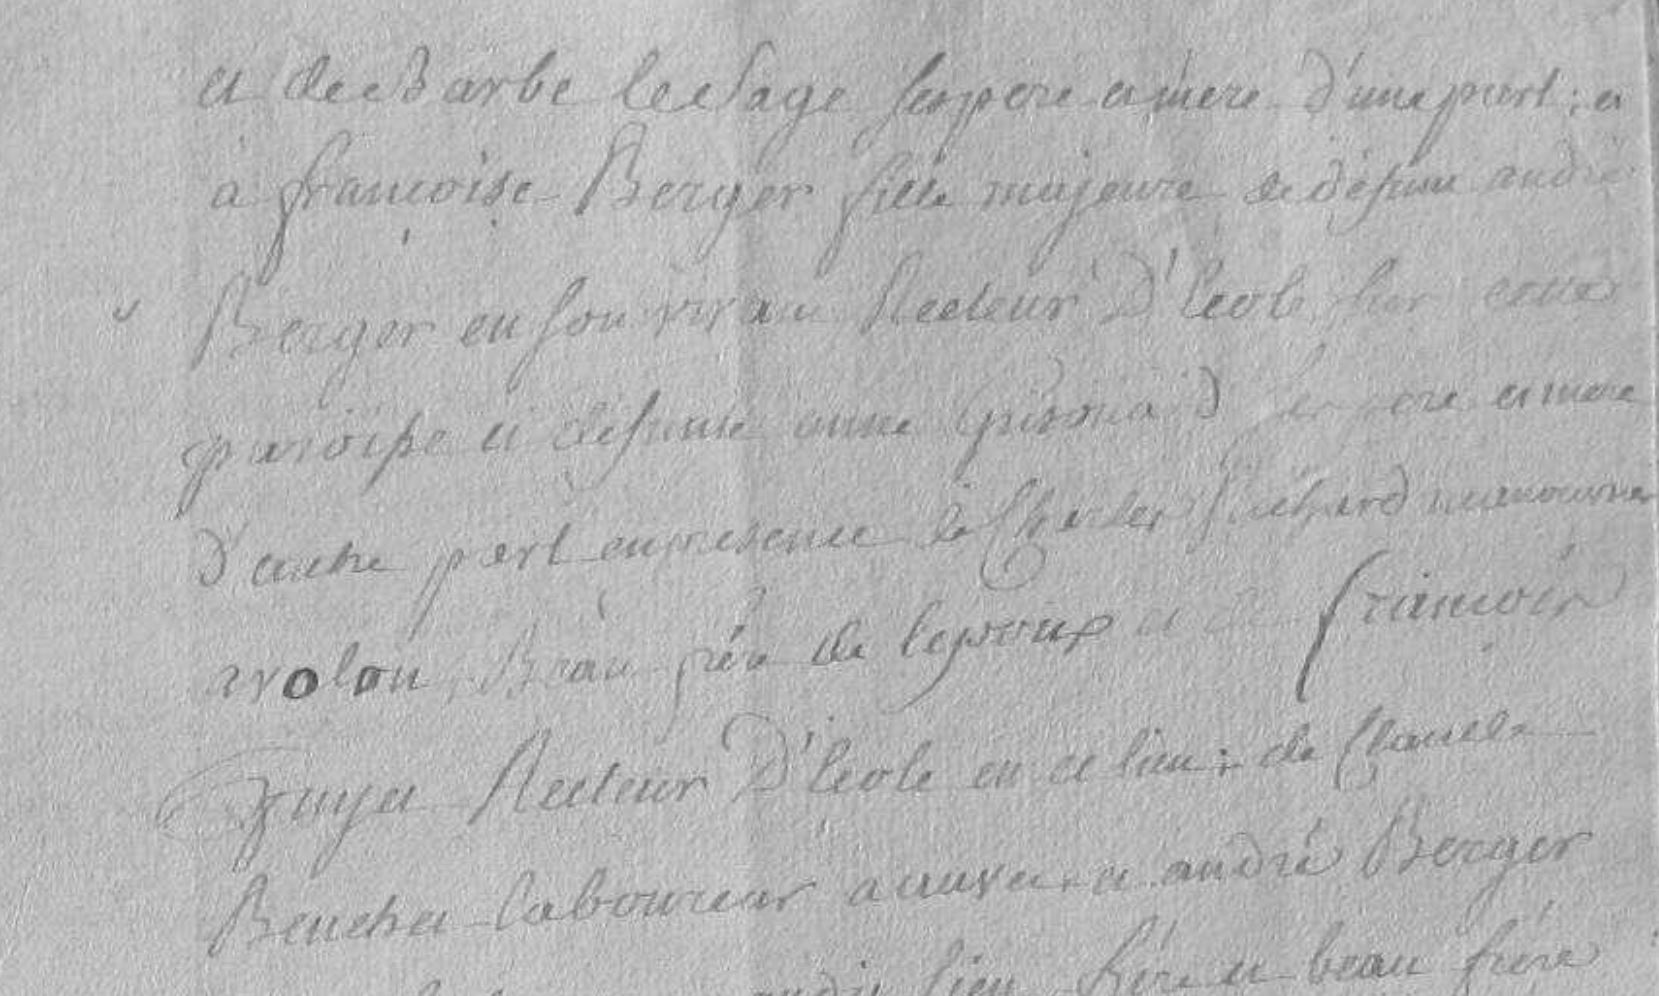 et de Barbe le Sage ses pere et mere d'une part ; et
à francoise Berger fille majeure de défunt andré
Berger en son vivant Recteur D'Ecole sur cette
paroisse et défunte anne ses pere et mere
d'autre part en presence de Charles manouvrier
avolon Beau frère de l'epoux et de francois
Recteur D'Ecole en ce lieu ; de Claude
Beucher laboureur a et andré Berger
lieu frère et beau frère